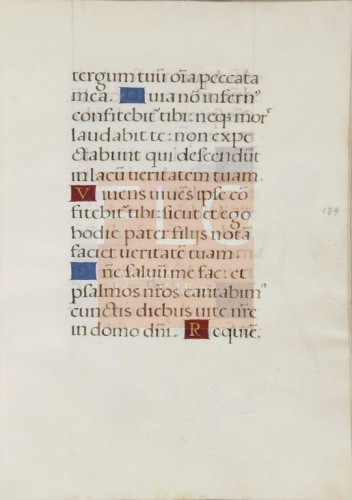 tergum tuũ oĩa peccata
mea. Quia nõ infernꝰ
cõfitebit᷑ tibi: neq; morˢ
laudabit te: non expe
ctabunt qui descendũt
in lacũ ueritatem tuam.
Viuens uiuẽs ipse cõ
fitebit᷑ tibi: sicut et ego
hodie pater filijs notã
faciet ueritatẽ tuam.
Dñe saluũ me fac: et
psalmos nr̃os cantabimꝰ
cunctis diebus uite nr̃e
in domo dñi. Requiẽ.
189